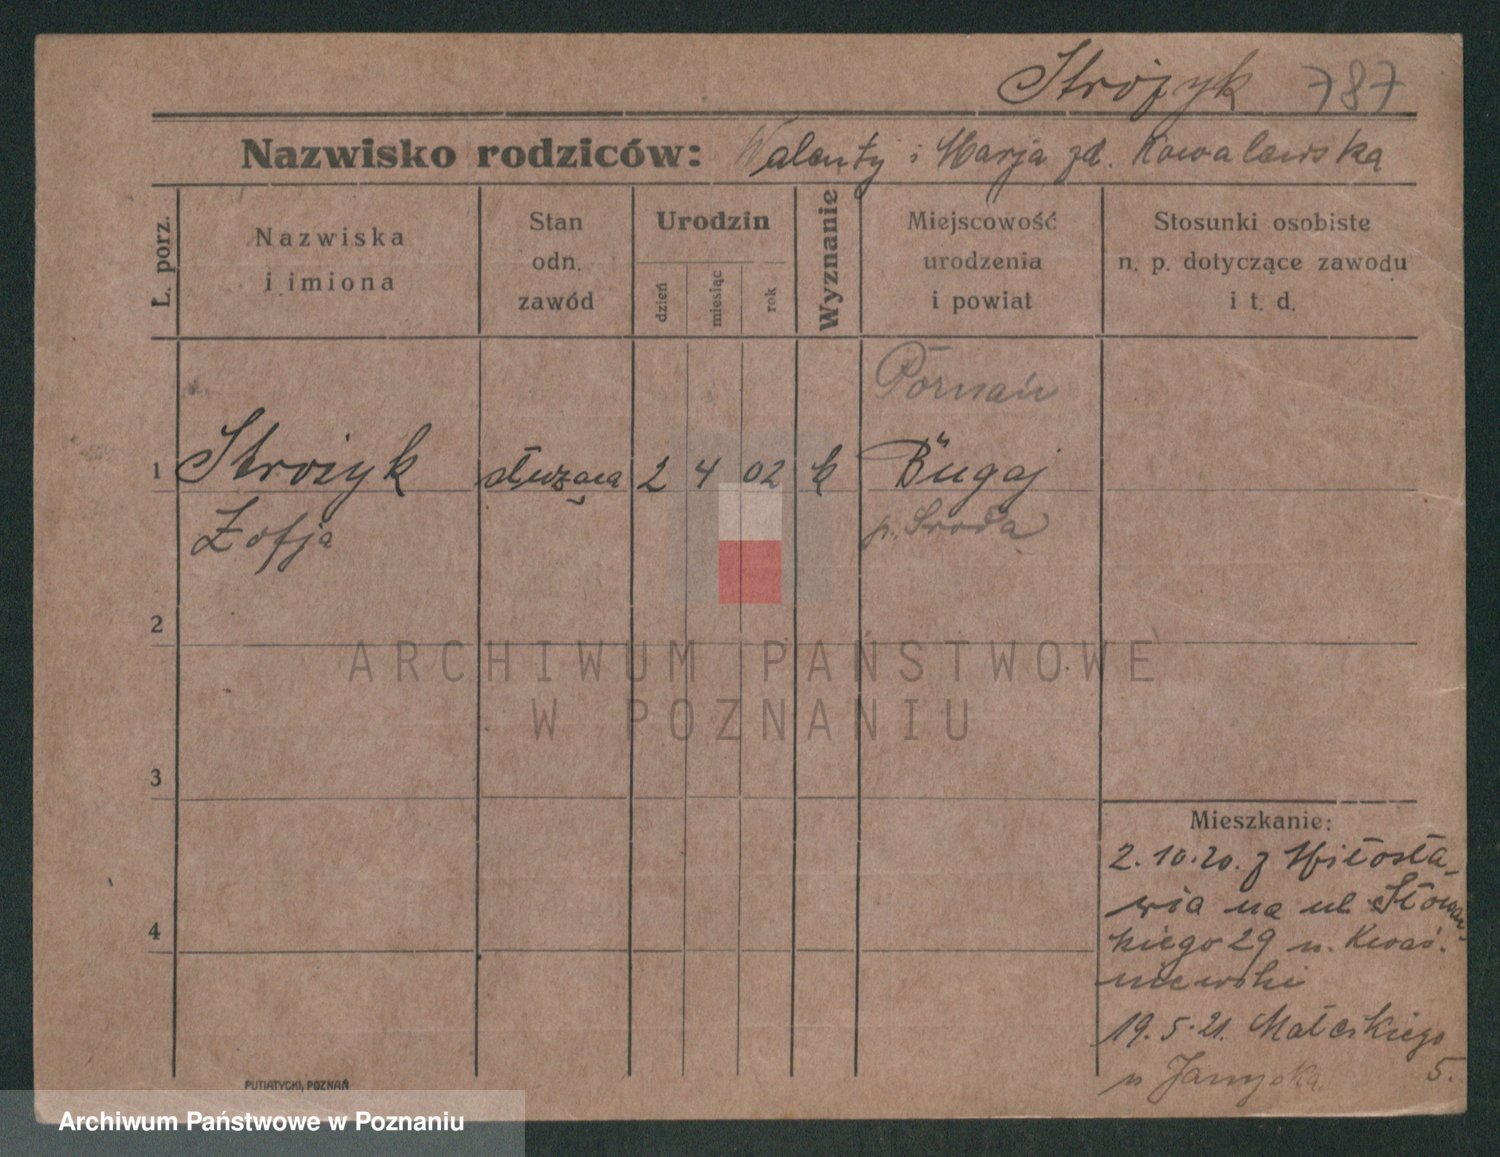 Stróżyk 787
Nazwisko rodziców: Walenty i Marja zd. Kowalewska
L. porz.
Nazwiska
i imiona
Stan
odn.
zawód
Urodzin
dzień
miesiąc
rok
Wyznanie
Miejscowość
urodzenia
i powiat
Stosunki osobiste
n. p. dotyczące zawodu
i t. d.
Poznań
1 Strożyk służąca 2 4 02 k Bugaj
Zofja p. Środa
2
3
4
ARCHIWUM PAŃSTWOWE
W POZNANIU
Mieszkanie:
2.10.20. z Miłosła-
wia na ul Słowac
kiego 29 u. Kwaś.
niewski
19.5.21. Małeckiego
u 5.
PUTIATYCKI, POZNAŃ
Archiwum Państwowe w Poznaniu